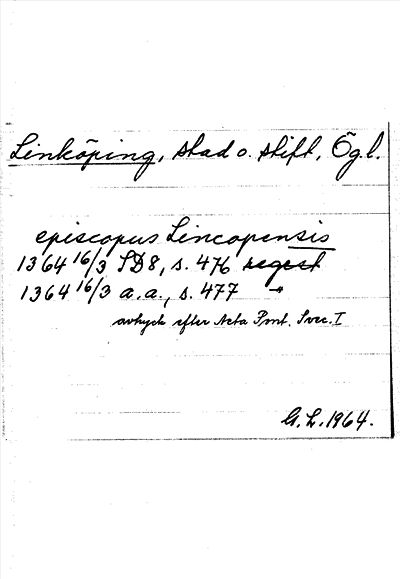 Linköping, stad o. stift, Ög.l.
episcopus Lincopensis
1364 16/3 SD8, s. 476 regest
1364 16/3 a.a., s. 477 -"-
avtryck efter Acta Pont. Svec. I
G.L. 1964.